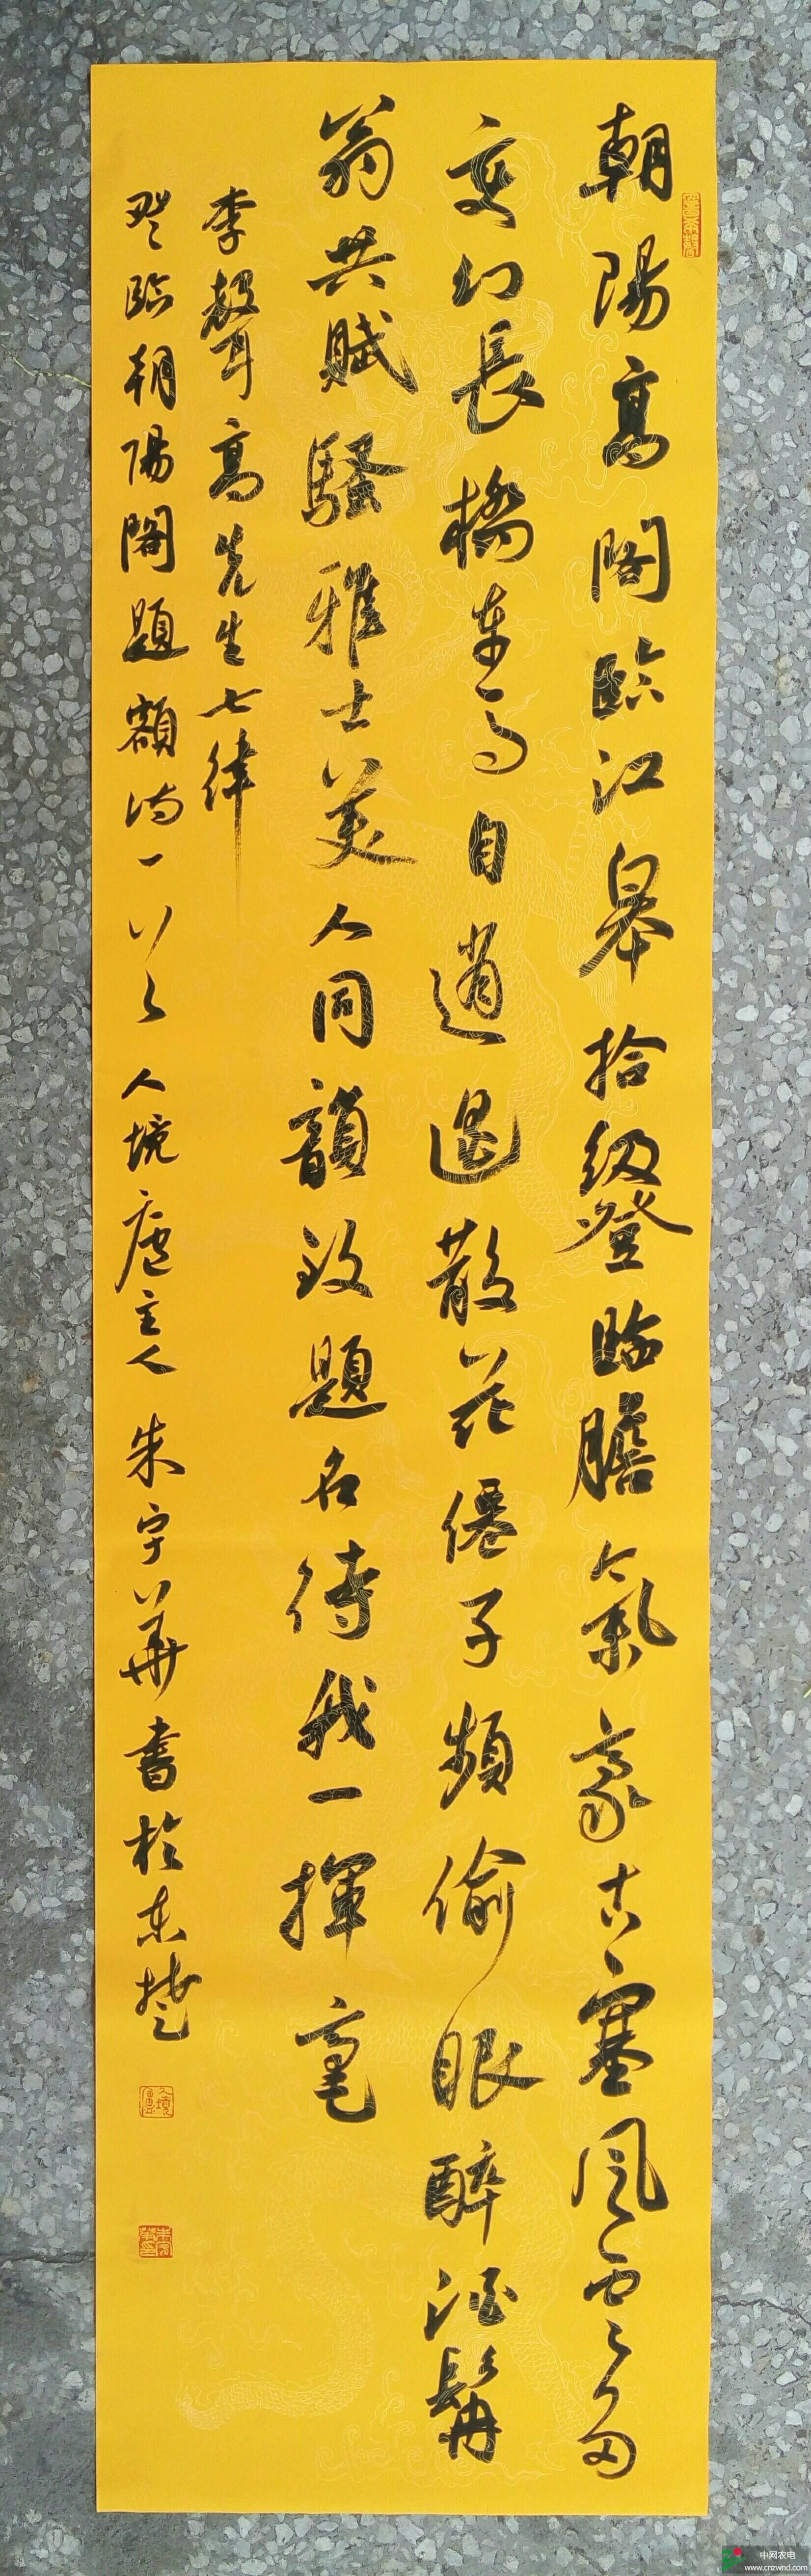 朝陽高閣臨江皋拾級登臨膽氣豪古塞風雲多
變幻長橋車馬自逍遥散花僊子頻偷眼醉酒髯
翁共賦騷雅士美人同韻致題名待我一揮毫
李聲高先生七律
登臨朝陽閣題額詩一首
人境廬主人朱宇華書於東楚
人境廬
中网农电
www.cnzwnd.com